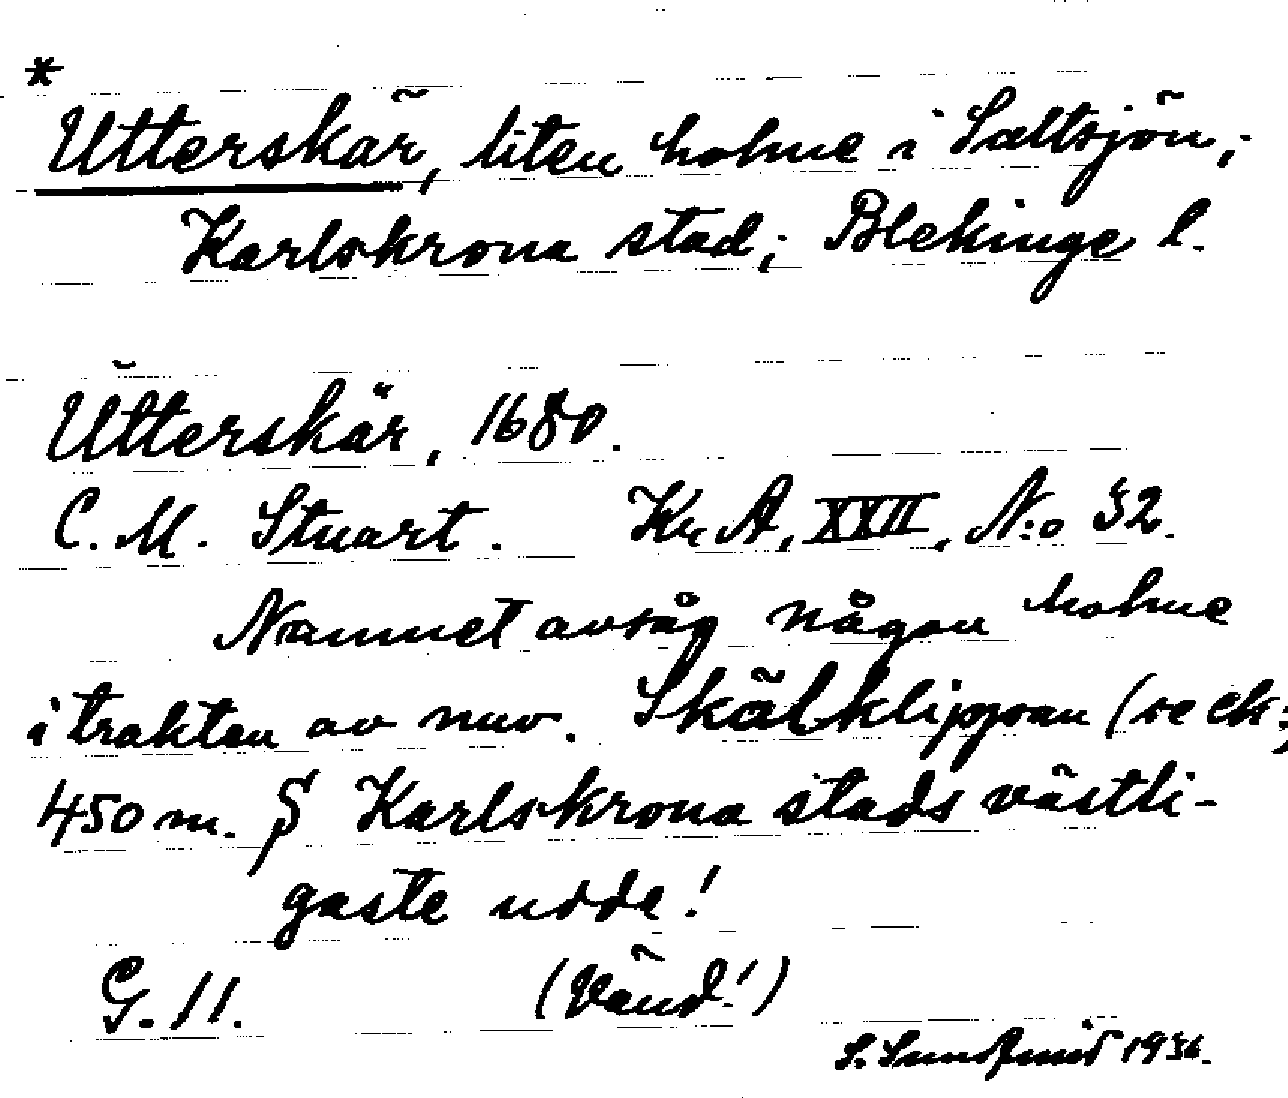 *
Utterskär, liten holme i Saltsjön;
Karlskrona stad; Blekinge l.
Utterskär, 1680.
C. M. Stuart. Kr. A, XXII, N:o 32.
Namnet avsåg någon holme
i trakten av nuv. Skälklippan (se ek;
450 m. S Karlskrona stads västli-
gaste udde!
G. 11. (Vänd!)
S. 1936.